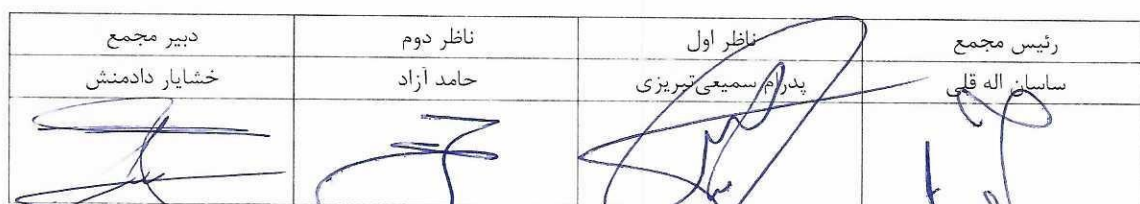 رئیس مجمع ناظر اول ناظر دوم دبیر مجمع
ساسان اله قلی پدرام سمیعی‌تبریزی حامد آزاد خشایار دادمنش